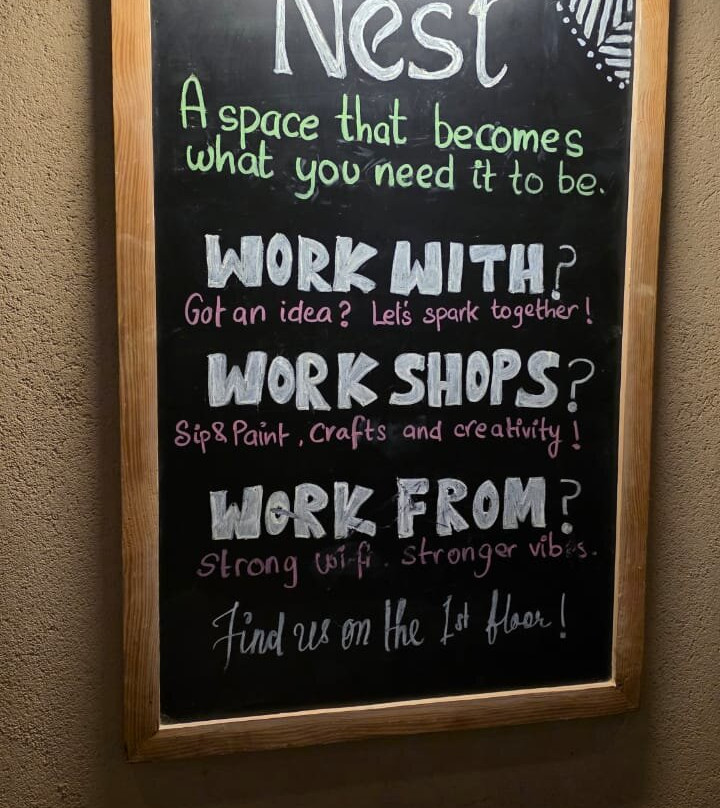 Nest
A space that becomes
what you need it to be.
WORK WITH?
Got an idea? Let's spark together!
WORK SHOPS?
Sip & Paint, Crafts and creativity!
WORK FROM?
Strong wi-fi. Stronger vibes.
Find us on the 1st floor!